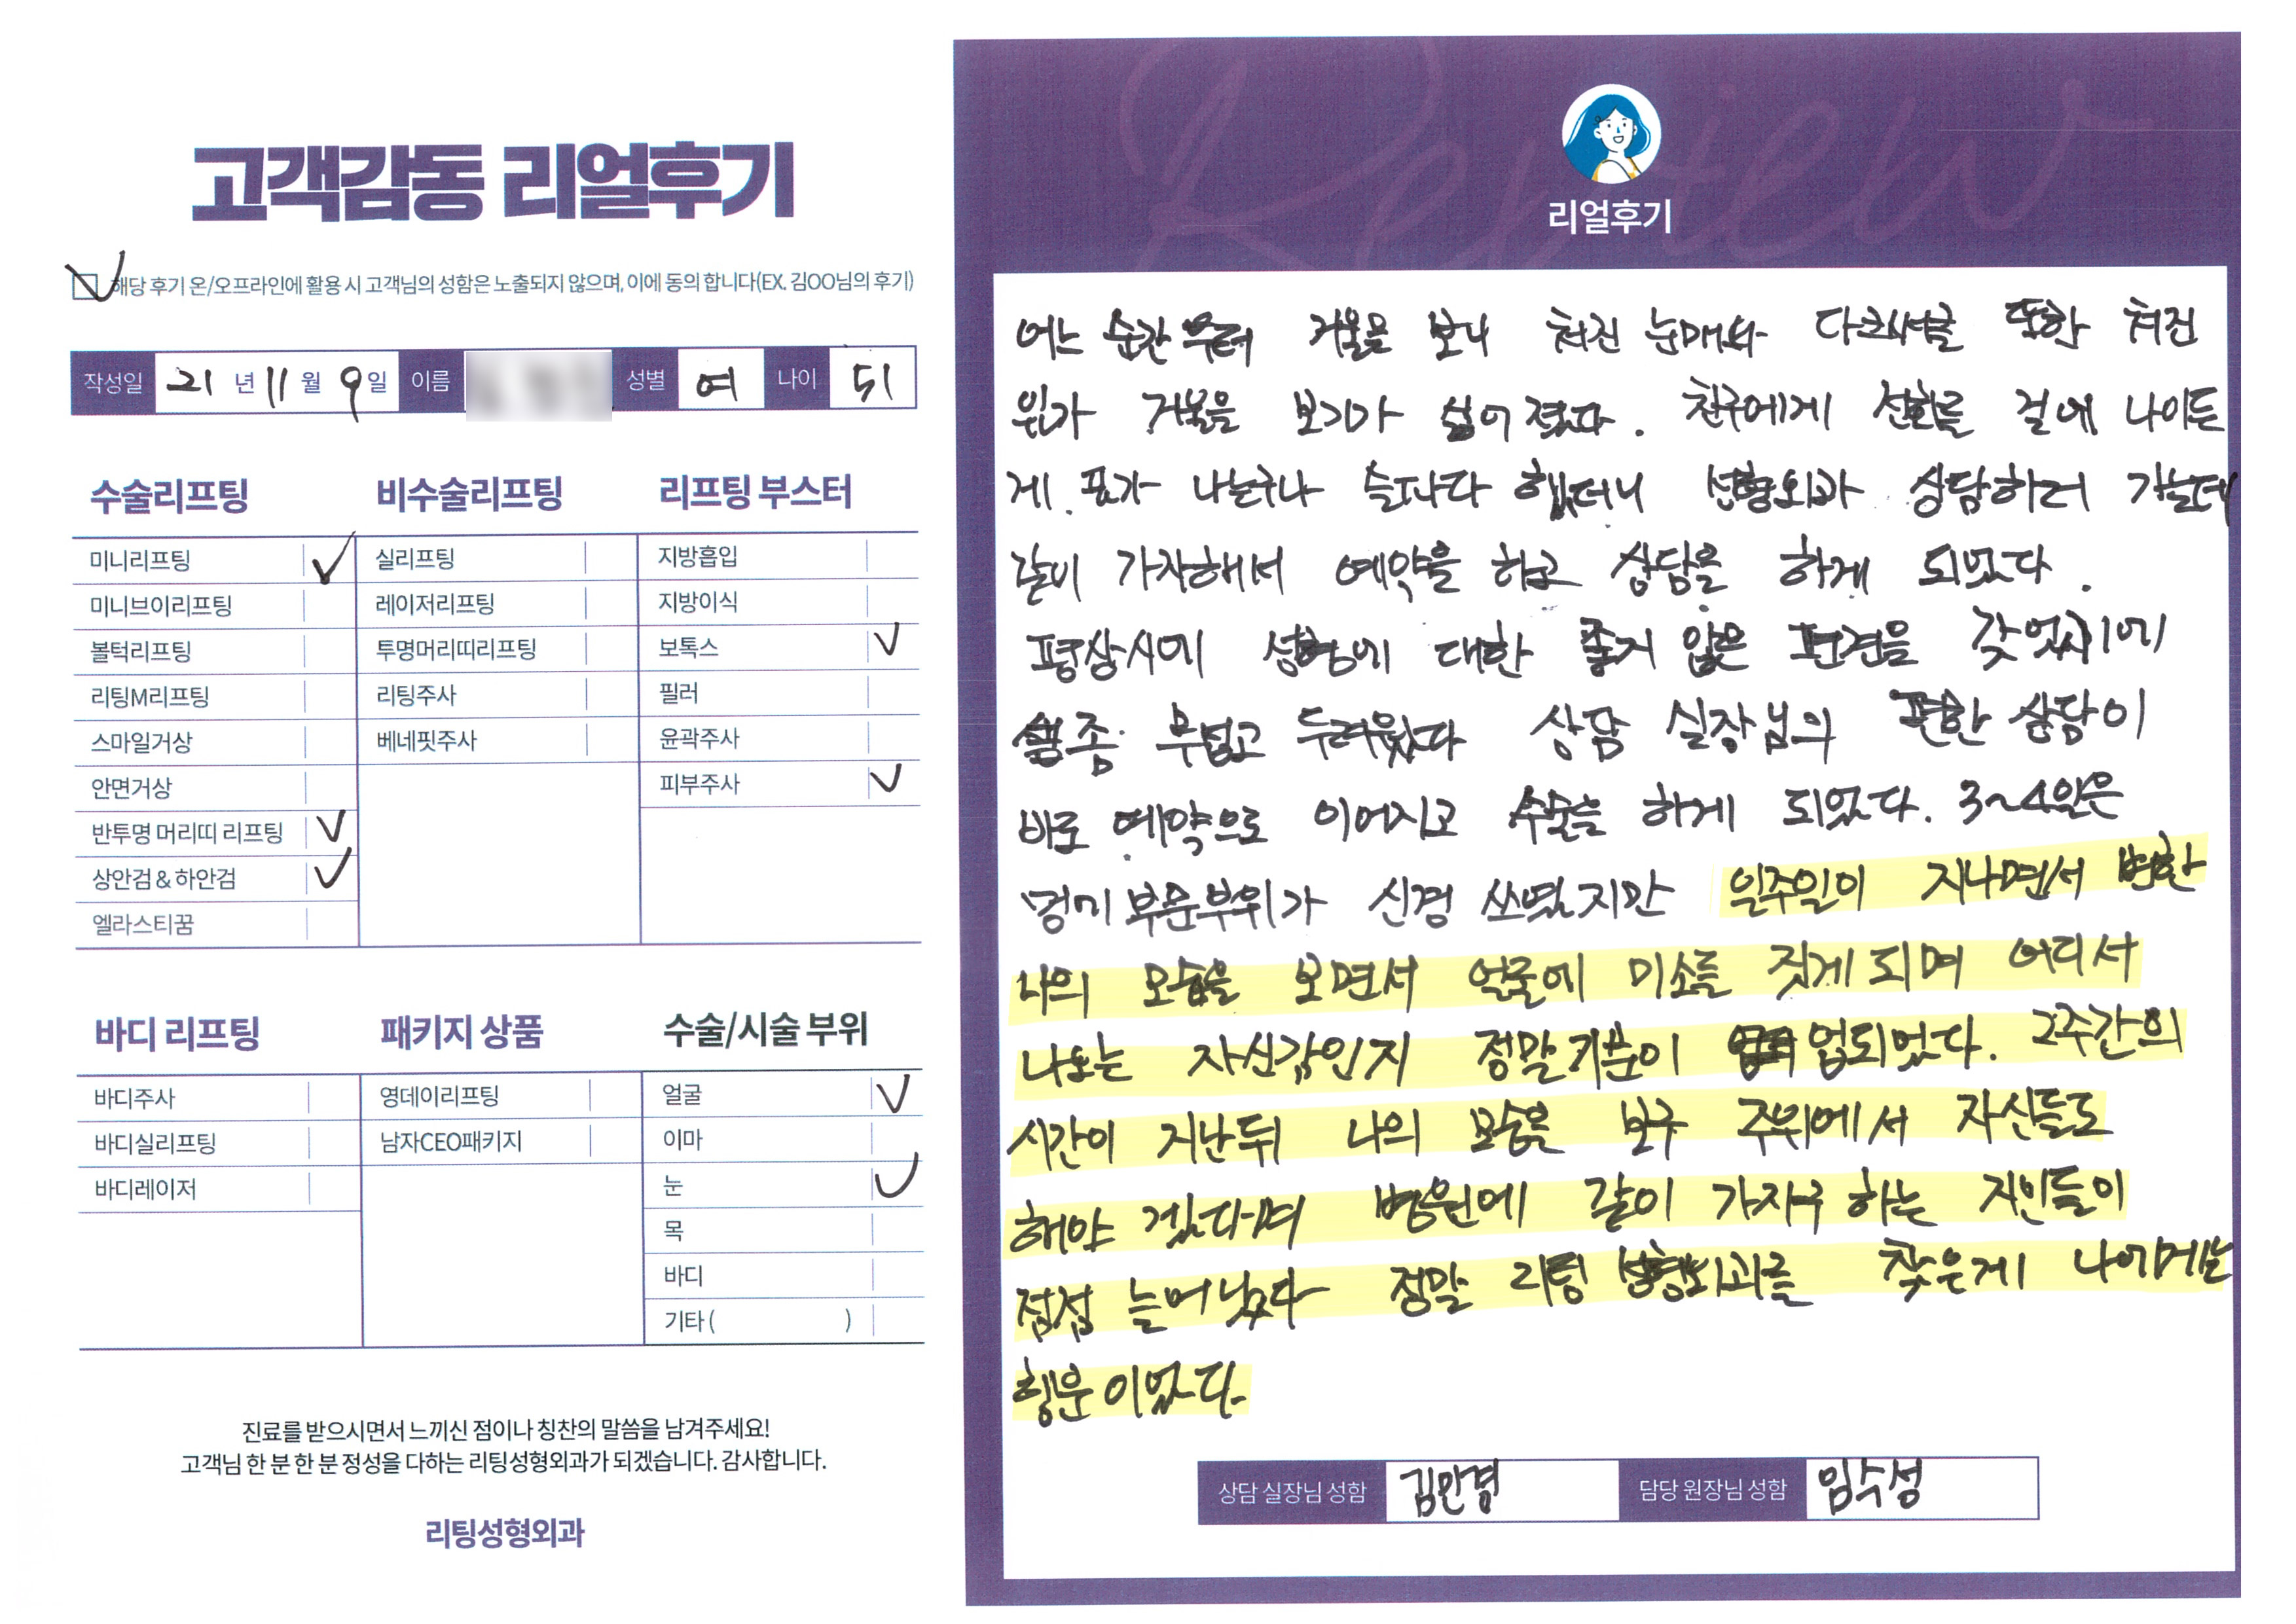 고객감동 리얼후기
해당 후기 온/오프라인에 활용 시 고객님의 성함은 노출되지 않으며, 이에 동의 합니다(EX. 김OO님의 후기)
작성일 21 년 11 월 9 일 이름 성별 여 나이 51
수술리프팅
미니리프팅
미니브이리프팅
볼턱리프팅
리팅M리프팅
스마일거상
안면거상
반투명 머리띠 리프팅
상안검 & 하안검
엘라스티꿈
비수술리프팅
실리프팅
레이저리프팅
투명머리띠리프팅
리팅주사
베네핏주사
리프팅 부스터
지방흡입
지방이식
보톡스
필러
윤곽주사
피부주사
바디 리프팅
바디주사
바디실리프팅
바디레이저
패키지 상품
영데이리프팅
남자CEO패키지
수술/시술 부위
얼굴
이마
눈
목
바디
기타 ( )
진료를 받으시면서 느끼신 점이나 칭찬의 말씀을 남겨주세요!
고객님 한 분 한 분 정성을 다하는 리팅성형외과가 되겠습니다. 감사합니다.
리팅성형외과
Review
리얼후기
어느 순간부터 거울을 보니 쳐진 눈매와 다크써클 또한 쳐진
거울을 보기가 싫어 졌다. 친구에게 전화를 걸에 나이든
게 표가 나는구나 슬프다 했더니 성형외과 상담하러 가는데
같이 가자해서 예약을 하고 상담을 하게 되었다.
평상시에 성형에 대한 좋지 않은 편견을 갖었기에
좀 무섭고 두려웠다 상담 실장님의 편한 상담이
바로 예약으로 이어지고 수술을 하게 되었다. 3~4일은
멍이 부운부위가 신경 쓰였지만 일주일이 지나면서 변한
나의 모습을 보면서 얼굴에 미소를 짓게 되며 어디서
나오는 자신감인지 정말 기분이 업되었다. 2주간의
시간이 지난뒤 나의 모습을 보구 주위에서 자신들도
해야 겠다며 병원에 같이 가자구 하는 지인들이
점점 늘어났다 정말 리팅 성형외과를 찾은게 나에게는
행운 이었다.
상담 실장님 성함 김민경 담당 원장님 성함 임수성